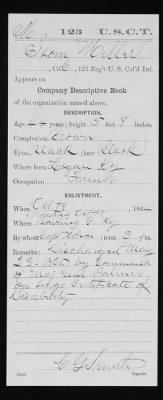 M | 123 | U.S.C.T.
Miller
, Col , 123 Reg't U. S. Col'd Inf.
Appears on
Company Descriptive Book
of the organization named above.
DESCRIPTION.
Age years; height 5 feet 8 inches.
Complexion Brown
Eyes Black ; hair Black
Where born Logan Ky
Occupation Farmer
ENLISTMENT.
When Oct 28 , 1864
Where Bowling G. Ky
By whom Capt ; term 3 y'rs.
Remarks: Discharged May
22 1865 by Command
of Maj Genl Palmer
on Surgs Certificate of
Disability
Copyist.